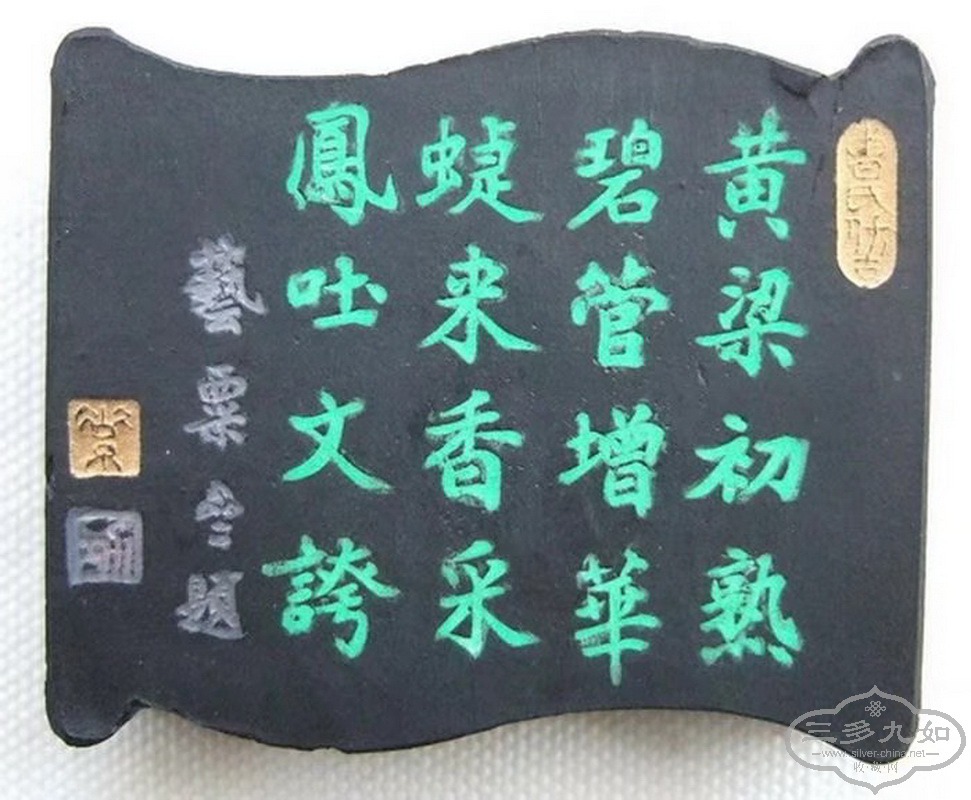 黄梁初熟
碧管增華
蜨来香采
鳳吐文誇
藝粟題
三多九如
www.silver-ching.net
收·藏·网